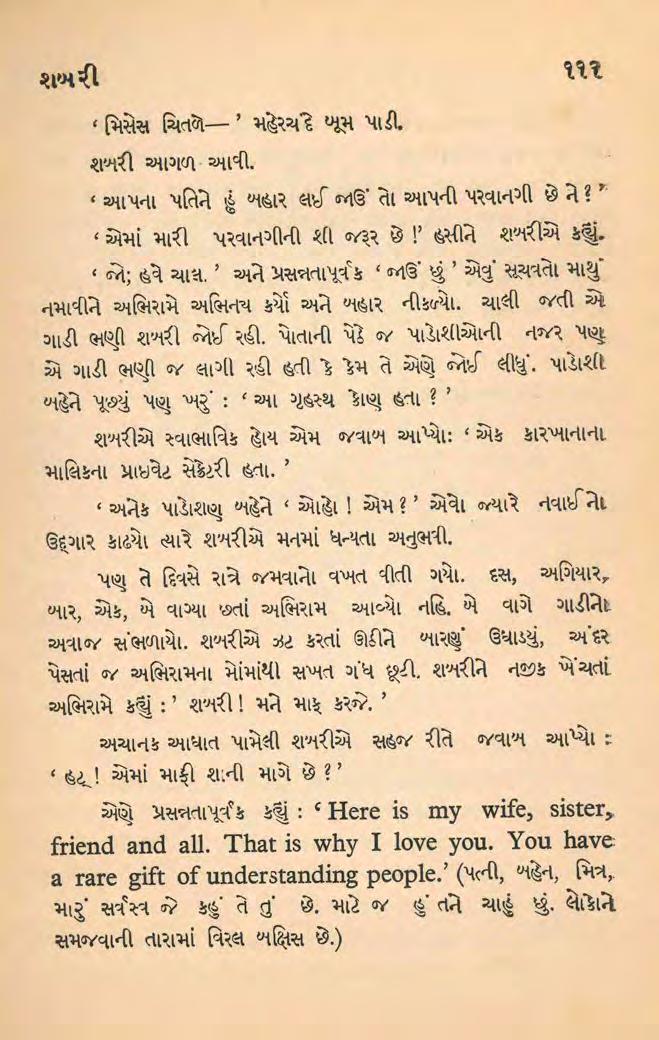 શબરી ૧૧૨
‘ મિસેસ ચિતળે— ’ મહેરચંદે બૂમ પાડી.
શબરી આગળ આવી.
‘ આપના પતિને હું બહાર લઈ જાઉં તો આપની પરવાનગી છે ને ? ’
‘ એમાં મારી પરવાનગીની શી જરૂર છે !’ હસીને શબરીએ કહ્યું.
‘ જો; હવે ચાલ. ’ અને પ્રસન્નતાપૂર્વક ‘ જાઉં છું ’ એવું સૂચવતો માથું
નમાવીને અભિરામે અભિનય કર્યો અને બહાર નીકળ્યો. ચાલી જતી એ
ગાડી ભણી શબરી જોઈ રહી. પોતાની પેઠે જ પાડોશીઓની નજર પણ
એ ગાડી ભણી જ લાગી રહી હતી કે કેમ તે એણે જોઈ લીધું. પાડોશી
બહેને પૂછયું પણ ખરું : ‘ આ ગૃહસ્થ કોણ હતા ? ’
શબરીએ સ્વાભાવિક હોય એમ જવાબ આપ્યો: ‘ એક કારખાનાના
માલિકના પ્રાઇવેટ સેક્રેટરી હતા. ’
‘ અનેક પાડોશણ બહેને ‘ ઓહો ! એમ ? ’ એવો જ્યારે નવાઈનો
ઉદ્દગાર કાઢયો ત્યારે શબરીએ મનમાં ધન્યતા અનુભવી.
પણ તે દિવસે રાત્રે જમવાનો વખત વીતી ગયો. દસ, અગિયાર,
બાર, એક, બે વાગ્યા છતાં અભિરામ આવ્યો નહિ. બે વાગે ગાડીનો
અવાજ સંભળાયો. શબરીએ ઝટ કરતાં ઊઠીને બારણું ઉઘાડયું, અંદર
પેસતાં જ અભિરામના મોંમાંથી સખત ગંધ છૂટી. શબરીને નજીક ખેંચતાં
અભિરામે કહ્યું :’ શબરી ! મને માફ કરજે. ’
અચાનક આઘાત પામેલી શબરીએ સહજ રીતે જવાબ આપ્યો :
‘ હટ્ ! એમાં માફી શાની માગે છે ?’
એણે પ્રસન્નતાપૂર્વક કહ્યું : ‘ Here is my wife, sister,
friend and all. That is why I love you. You have
a rare gift of understanding people.’ (પત્ની, બહેન, મિત્ર,
મારું સર્વસ્વ જે કહું તે તું છે. માટે જ હું તને ચાહું છું. લોકોને
સમજવાની તારામાં વિરલ બક્ષિસ છે.)